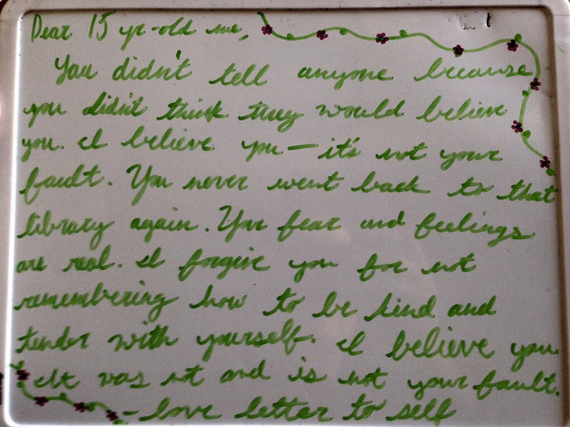 Dear 15 yr-old me,
You didn't tell anyone because
you didn't think they would believe
you. I believe you—it's not your
fault. You never went back to that
library again. Your fear and feelings
are real. I forgive you for not
remembering how to be kind and
tender with yourself. I believe you
It was not and is not your fault.
-love letter to self